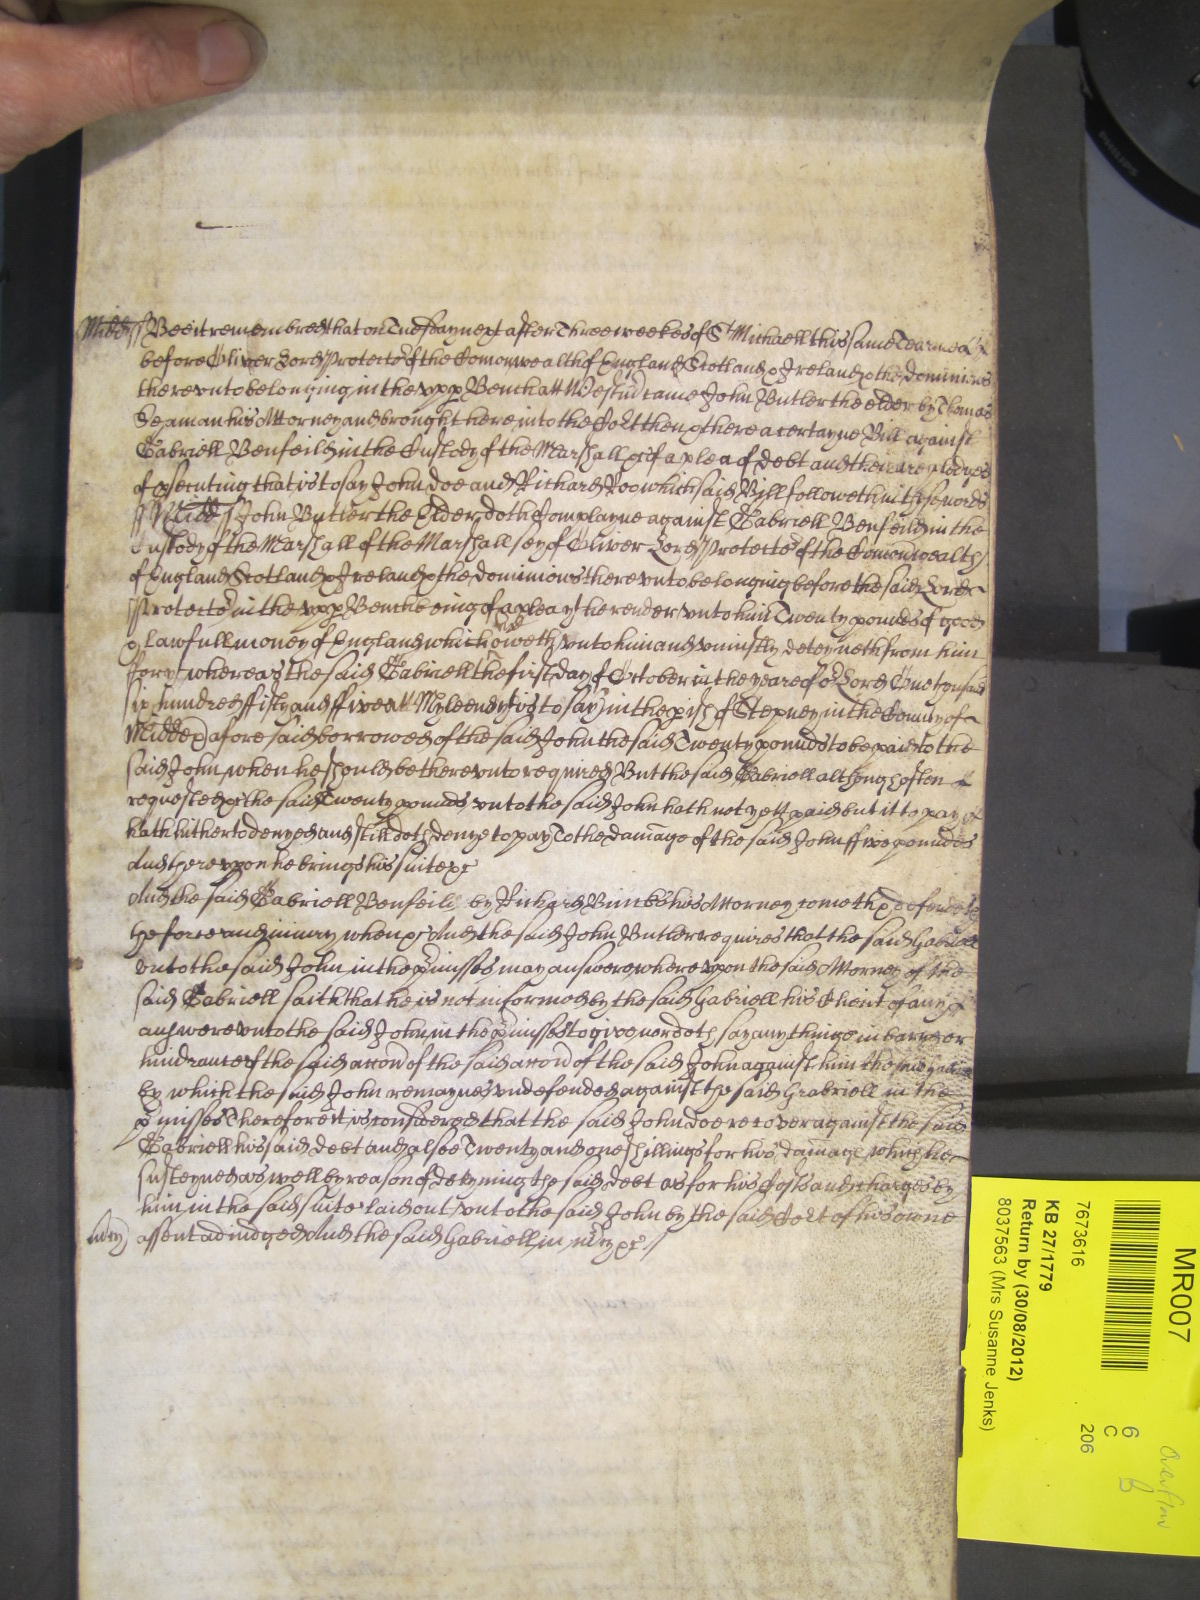 Midds ss Bee it remembred that on Tuesday next after Three weekes of St Michaell this same Tearme
before Oliver Lord Protector of the Comonwealth of England Scotland & Ireland & the dominions
thereunto belonging in the upp Bench att Westmr came John Butler the elder by Thomas
Seaman his Attorney and brought here into the Cort then & there a certayne Bill against
Gabriell Benfeild in the Custody of the Marshall &c of a plea of debt and there are pledges
of psecuting that is to say John doe and Richard Roo which said Bill followeth in these words
ss Midds ss John Butler the Elder doth Complayne against Gabriell Benfeild in the
Custody of the Marshall of the Marshallsey of Oliver Lord Protector of the Comonwealth
of England Scotland & Ireland & the dominions thereunto belonging before the said Lord
Protector in the upp Bench being of a plea that he render unto him Twenty pounds of good
& lawfull money of England which he oweth unto him and uniustly deteyneth from him
For that whereas the said Gabriell the first day of October in the yeare of or Lord One thousand
six hundred fifty and five att Myleend (that is to say) in the pish of Stepney in the County of
Midds aforesaid borrowed of the said John the said Twenty pounds to be paid to the
said John when he should be thereunto required But the said Gabriell although often
requested &c the said Twenty pounds unto the said John hath not yett paid but it to pay
hath hitherto denyed and still doth denye to pay To the damage of the said John ffive pounds
And thereupon he brings his suite &c
And the said Gabriell Benfeild by Richard his Attorney cometh & defendeth
the force and iniury when &c And the said John Butler requires that the said Gabriell
unto the said John in the pmisses may answere whereupon the said Attorney of the
said Gabriell saith that he is not informed by the said Gabriell his Client of any
answere unto the said John in the pmisses to give nor doth say any thinge in barr or
hindrance of the said accon of the said accon of the said John against him
by which the said John remaynes undefended against the said Gabriell in the
pmisses Therefore it is considered that the said John doe recover against the said
Gabriell his said debt and alsoe Twenty and one shillings for his damage which he
susteyned as well by reason of detyning the said debt as for his Costs and charges by
him in the said suite laid out unto the said John by the said Cort of his owne
mcy assent adiudged And the said Gabriell in mcy &c
MR007
7673616
KB 27/1779
Return by (30/08/2012)
8037563 (Mrs Susanne Jenks)
6
C
206
Overflow
B
PHILIPS